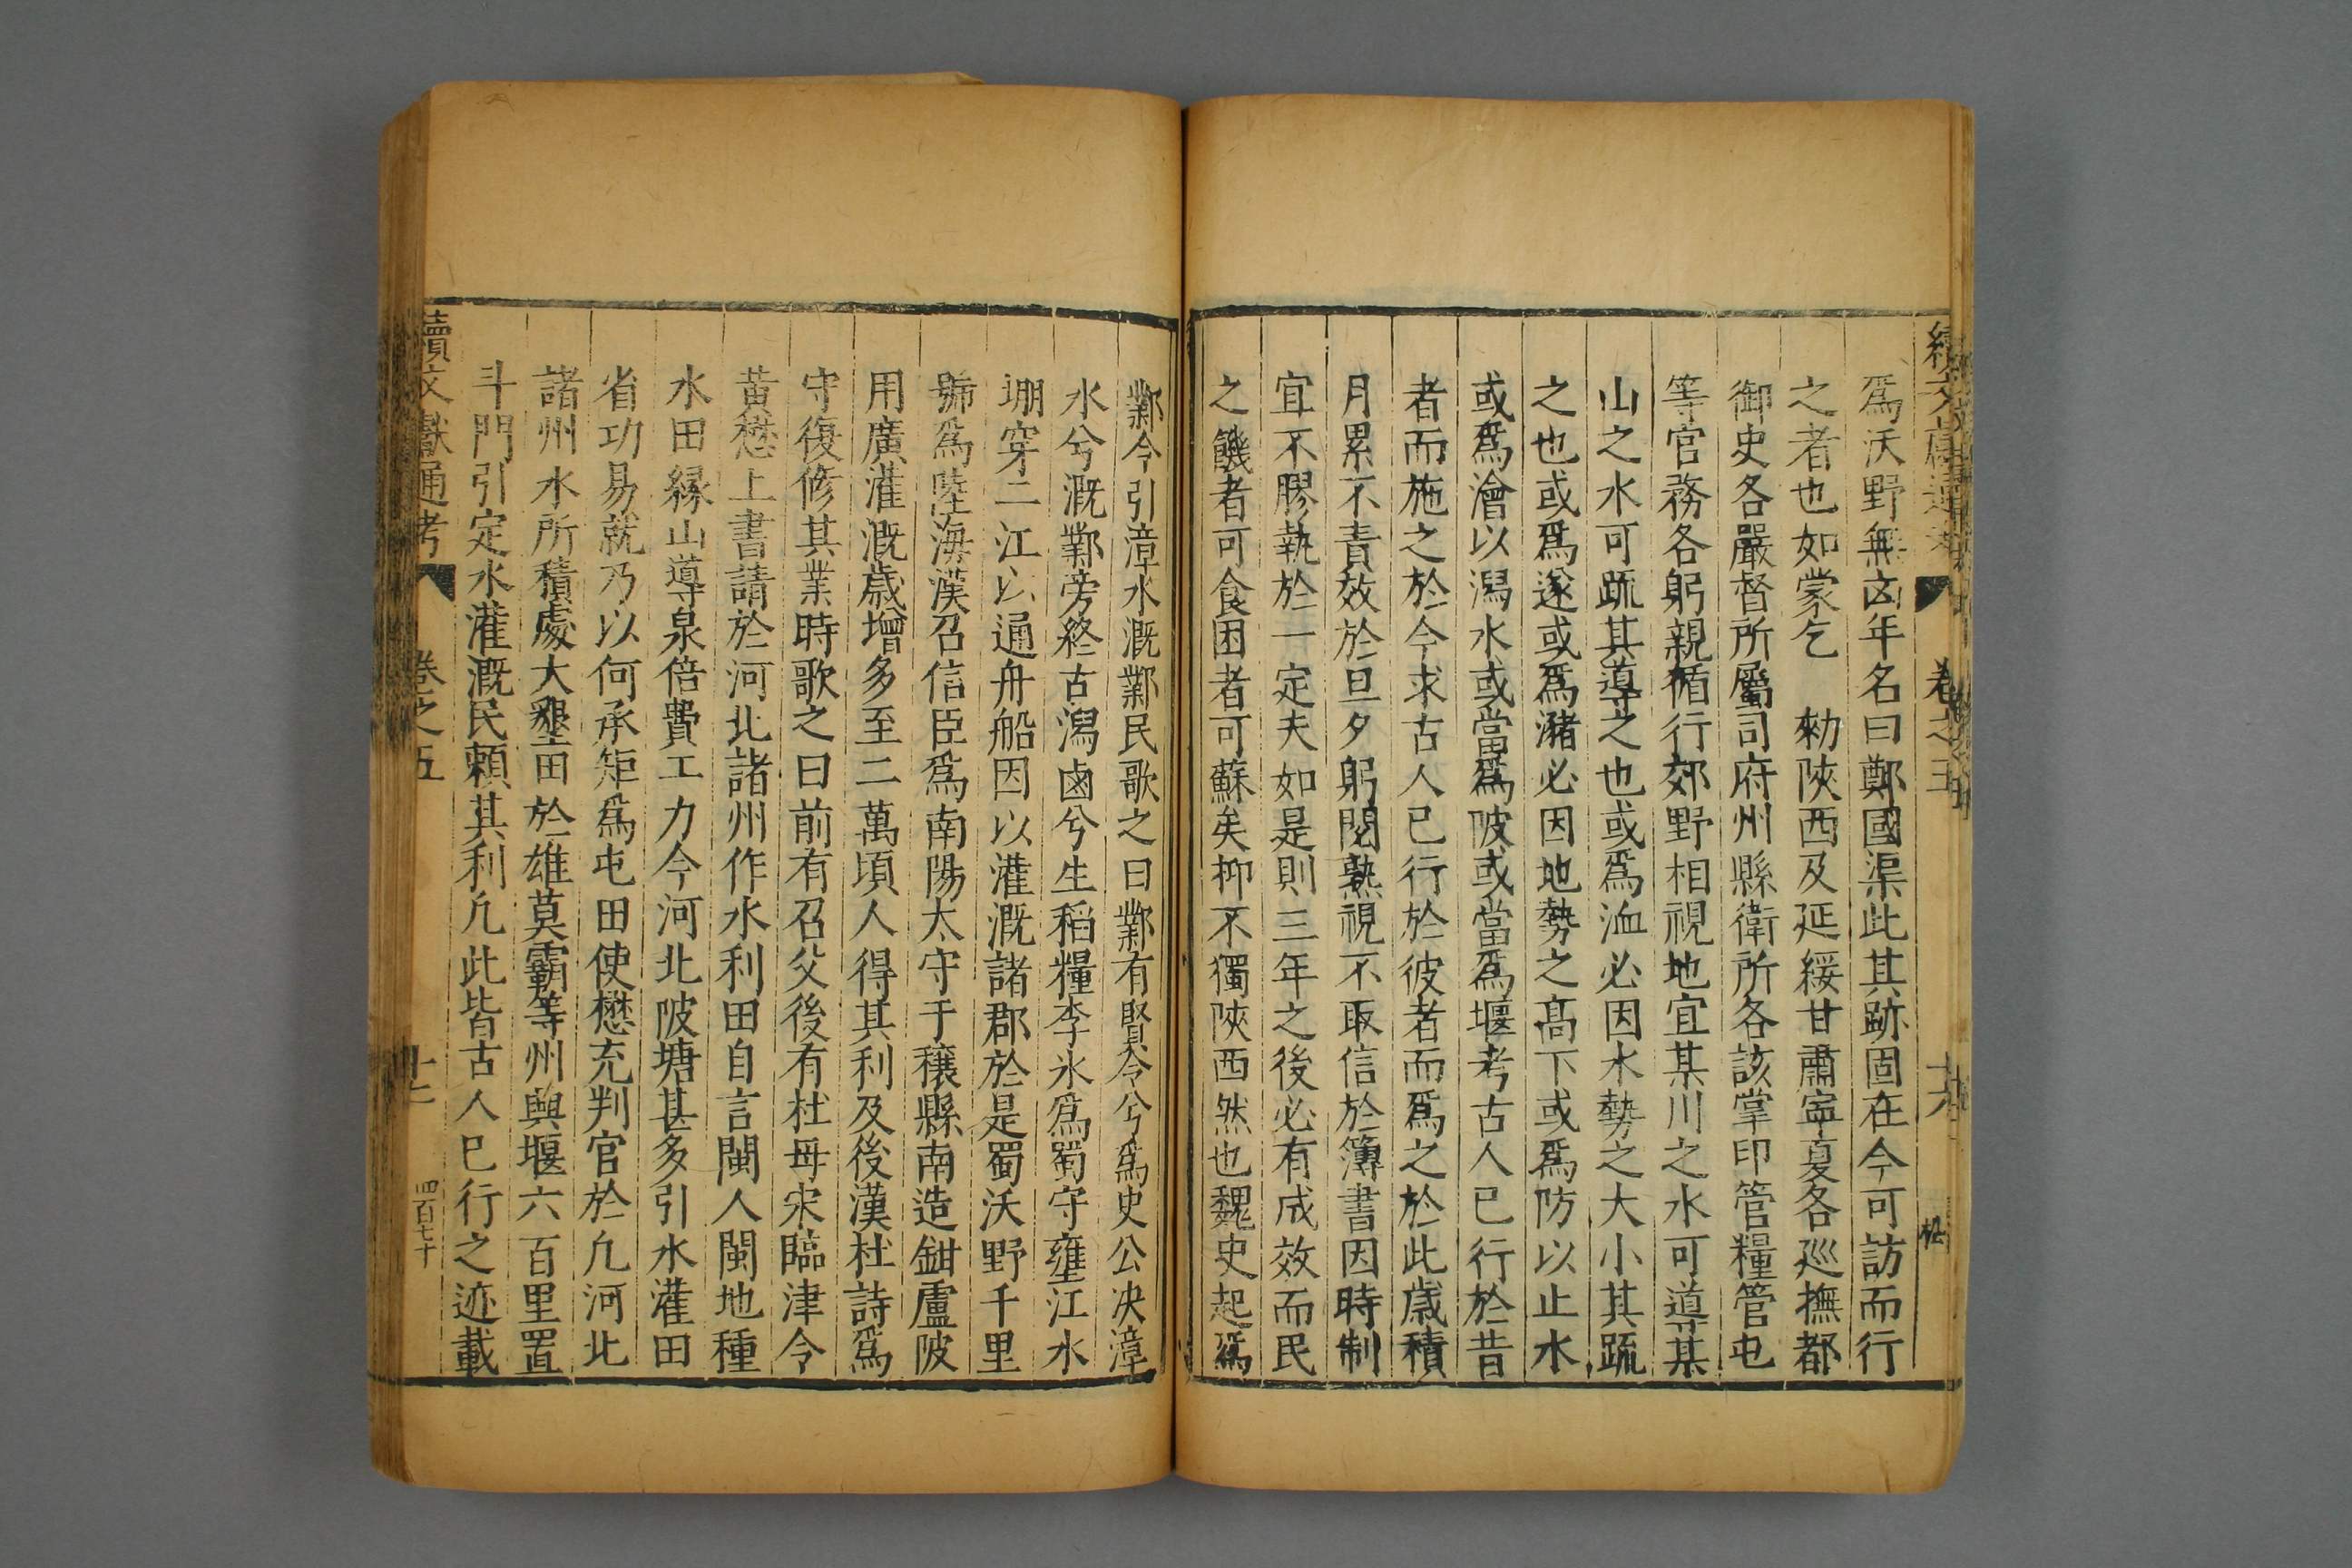 爲沃野無凶年名曰鄭國渠此其跡固在今可訪而行
之者也如蒙乞　勑陝西及延綏甘肅寧夏各巡撫都
御史各嚴督所屬司府州縣衛所各該掌印管糧管屯
等官務各躬親循行郊野相視地宜某川之水可導某
山之水可疏其導之也或爲洫必因水勢之大小其疏
之也或爲遂或爲瀦必因地勢之高下或爲防以止水
或爲澮以瀉水或當爲陂或當爲堰考古人已行於昔
者而施之於今求古人已行於彼者而爲之於此歲積
月累不責效於旦夕躬閱熟視不取信於簿書因時制
宜不膠執於一定夫如是則三年之後必有成效而民
之饑者可食困者可蘇矣抑不獨陝西然也魏史起爲
鄴令引漳水溉鄴民歌之曰鄴有賢令兮爲史公决漳
水兮溉鄴旁終古潟鹵兮生稻糧李氷爲蜀守壅江水
堋穿二江以通舟船因以灌溉諸郡於是蜀沃野千里
號爲陸海漢召信臣爲南陽太守于穰縣南造鉗盧陂
用廣灌溉歲增多至二萬頃人得其利及後漢杜詩爲
守復修其業時歌之曰前有召父後有杜母宋臨津令
黃懋上書請於河北諸州作水利田自言閩人閩地種
水田緣山導泉倍費工力今河北陂塘甚多引水灌田
省功易就乃以何承矩爲屯田使懋充判官於凡河北
諸州水所積處大墾田於雄莫霸等州興堰六百里置
斗門引定水灌溉民賴其利凡此皆古人已行之迹載
續文獻通考　卷之五　十二　四百七十